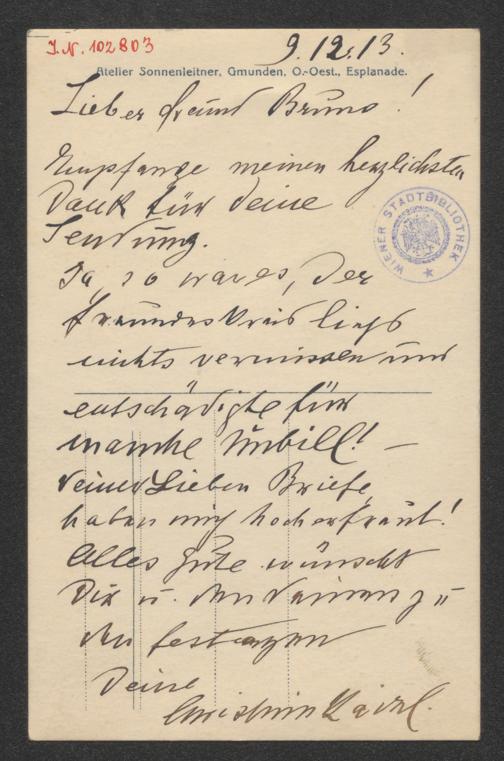 J.N. 102803
9.12.13.
Atelier Sonnenleitner, Gmunden, O.-Oest., Esplanade.
Lieber Freund Bruno!
Empfange meinen herzlichsten
Dank für Deine
Sendung.
Ja, so war es, der
Freundeskreis ließ
nichts vermissen und
entschädigte für
manche Unbill! –
Deine Lieben Briefe
haben mich hocherfreut!
Alles Gute wünscht
Dir u. den Deinen zu
den Festtagen
Deine
WIENER STADTBIBLIOTHEK